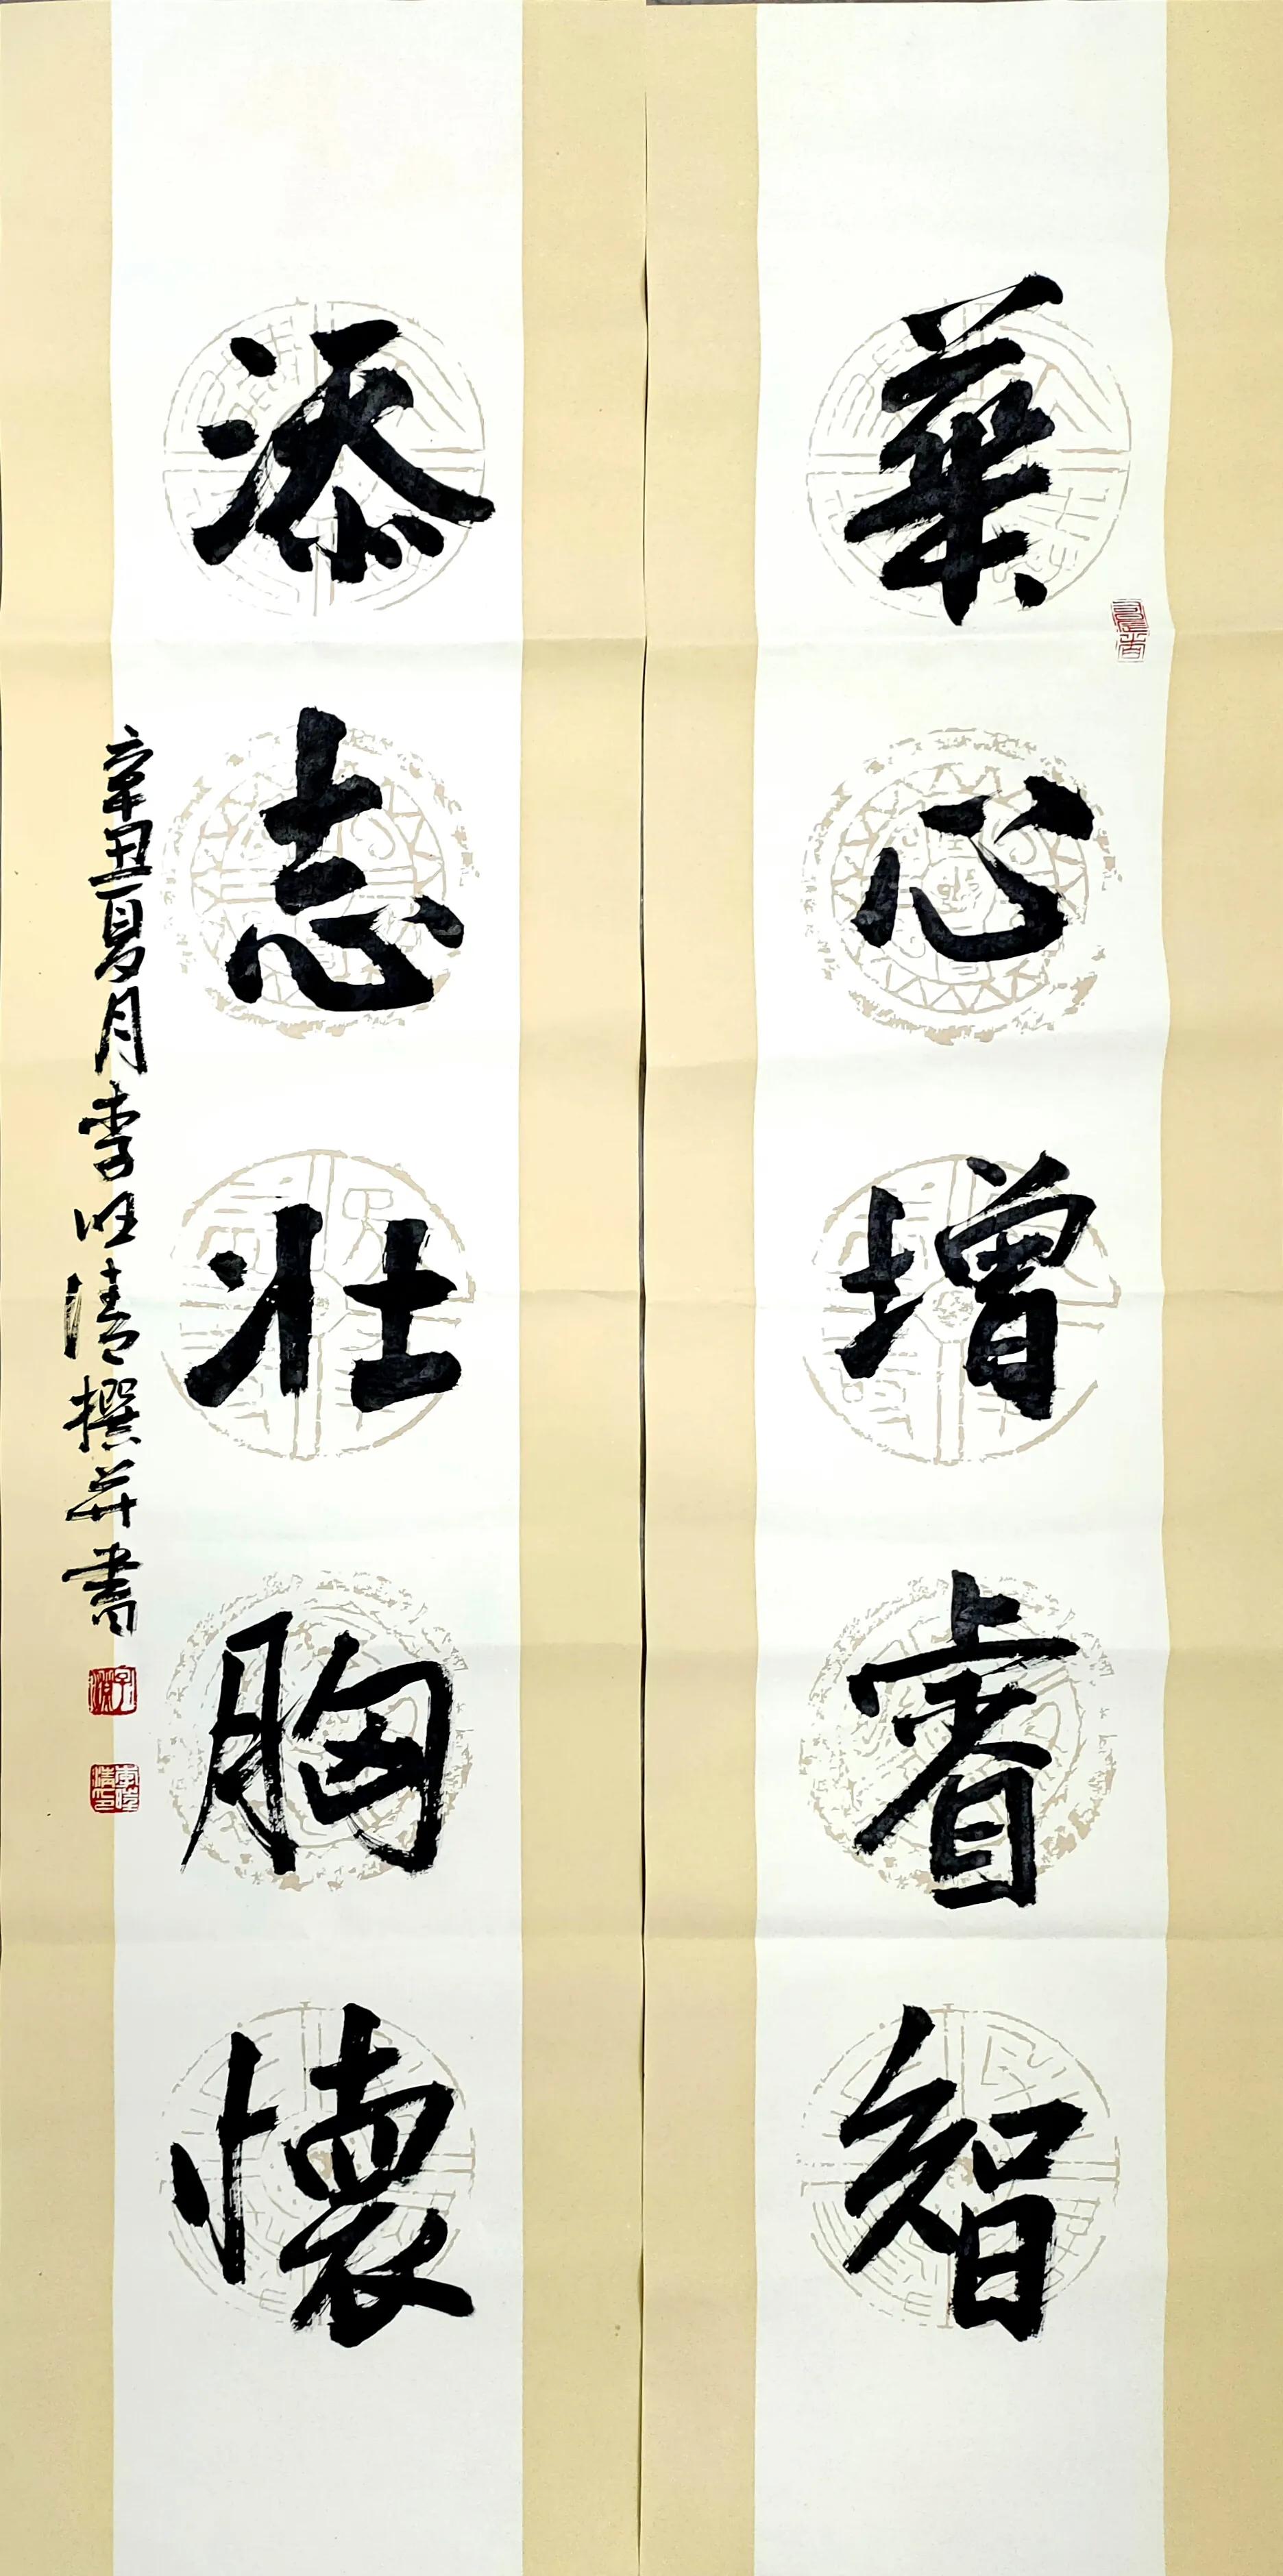 華心增睿智
添志壯胸懷
辛丑夏月李旺清撰并書